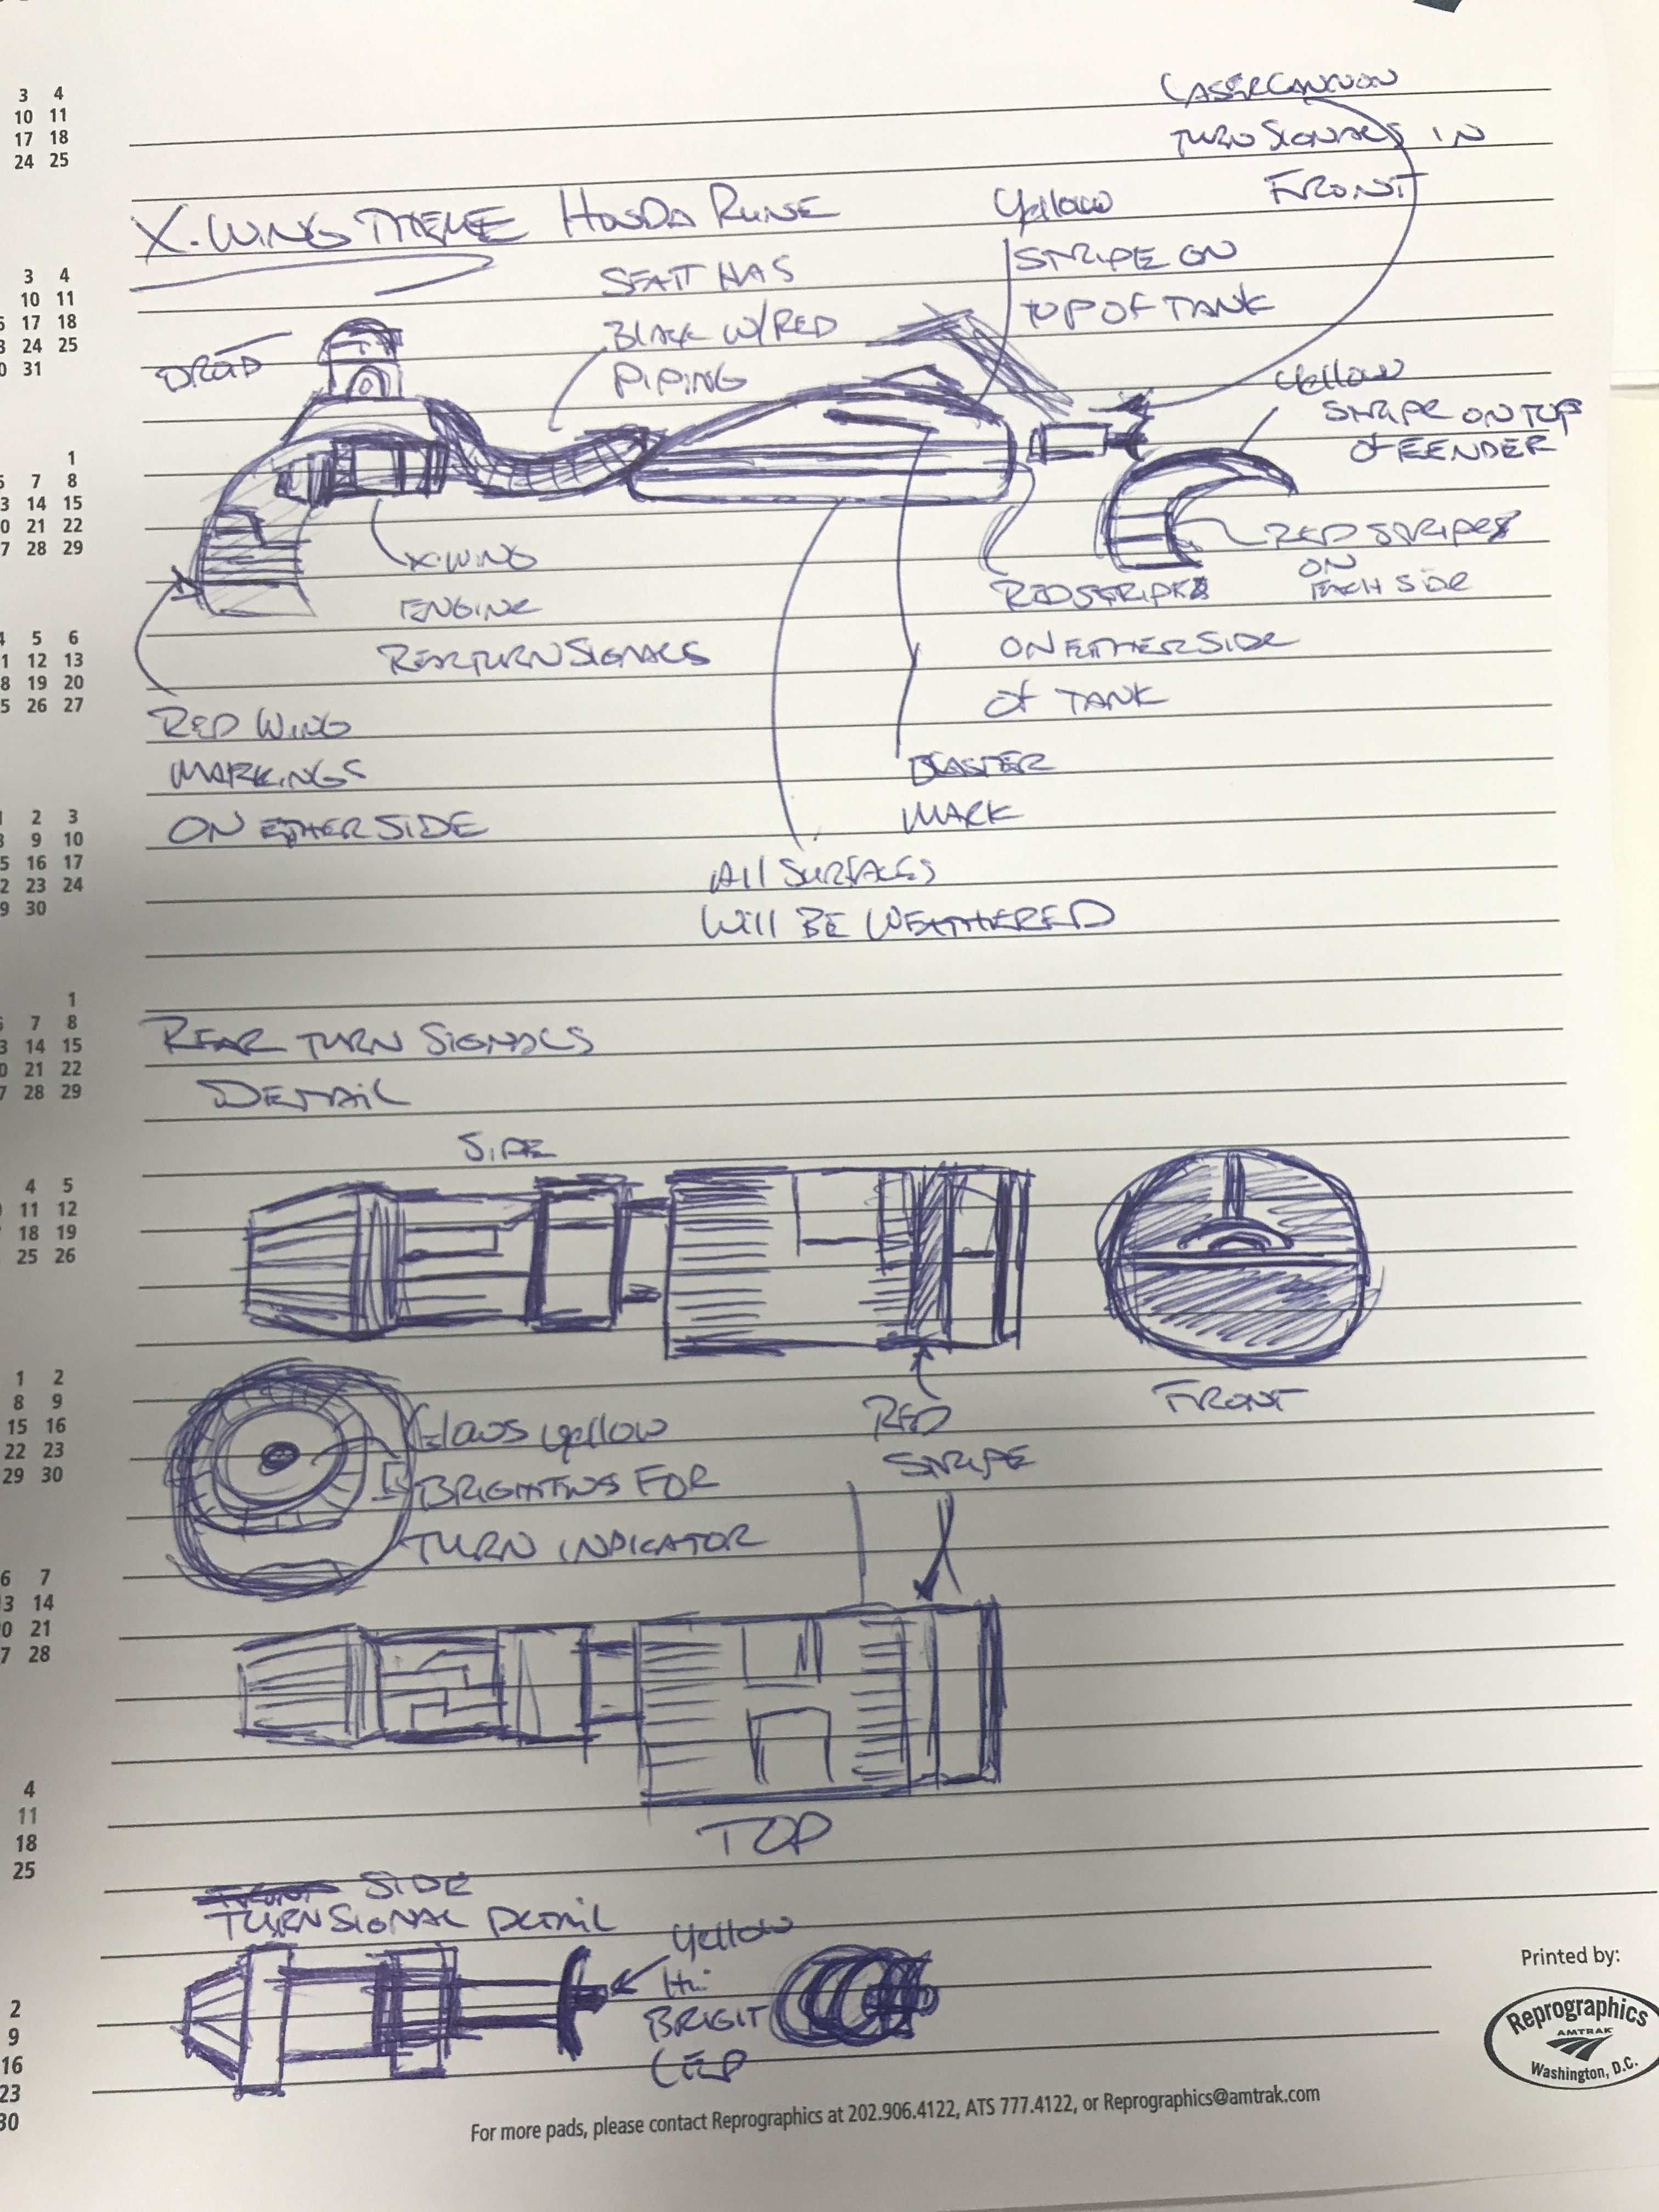 LASER CANNON
TURN SIGNALS IN
FRONT
X-WING THEME HONDA RUNE
Yellow
STRIPE ON
TOP OF TANK
SEAT HAS
BLACK W/RED
PIPING
DROID
Yellow
STRIPE ON TOP
of FENDER
RED STRIPES
ON
EACH SIDE
X-WING
ENGINE
REAR TURN SIGNALS
RED STRIPES
ON EITHER SIDE
of TANK
RED WING
MARKINGS
ON EITHER SIDE
BLASTER
MARK
All SURFACES
Will BE WEATHERED
REAR TURN SIGNALS
DETAIL
SIDE
RED
STRIPE
FRONT
Glows yellow
BRIGHTENS FOR
TURN INDICATOR
TOP
SIDE
TURN SIGNAL DETAIL
Yellow
Hi
BRIGIT
LED
3 4
10 11
17 18
24 25
3 4
10 11
17 18
24 25
31
1
7 8
14 15
21 22
28 29
5 6
12 13
19 20
26 27
2 3
9 10
16 17
23 24
30
1
7 8
14 15
21 22
28 29
4 5
11 12
18 19
25 26
1 2
8 9
15 16
22 23
29 30
6 7
13 14
20 21
27 28
4
11
18
25
2
9
16
23
30
Printed by:
Reprographics
AMTRAK
Washington, D.C.
For more pads, please contact Reprographics at 202.906.4122, ATS 777.4122, or Reprographics@amtrak.com